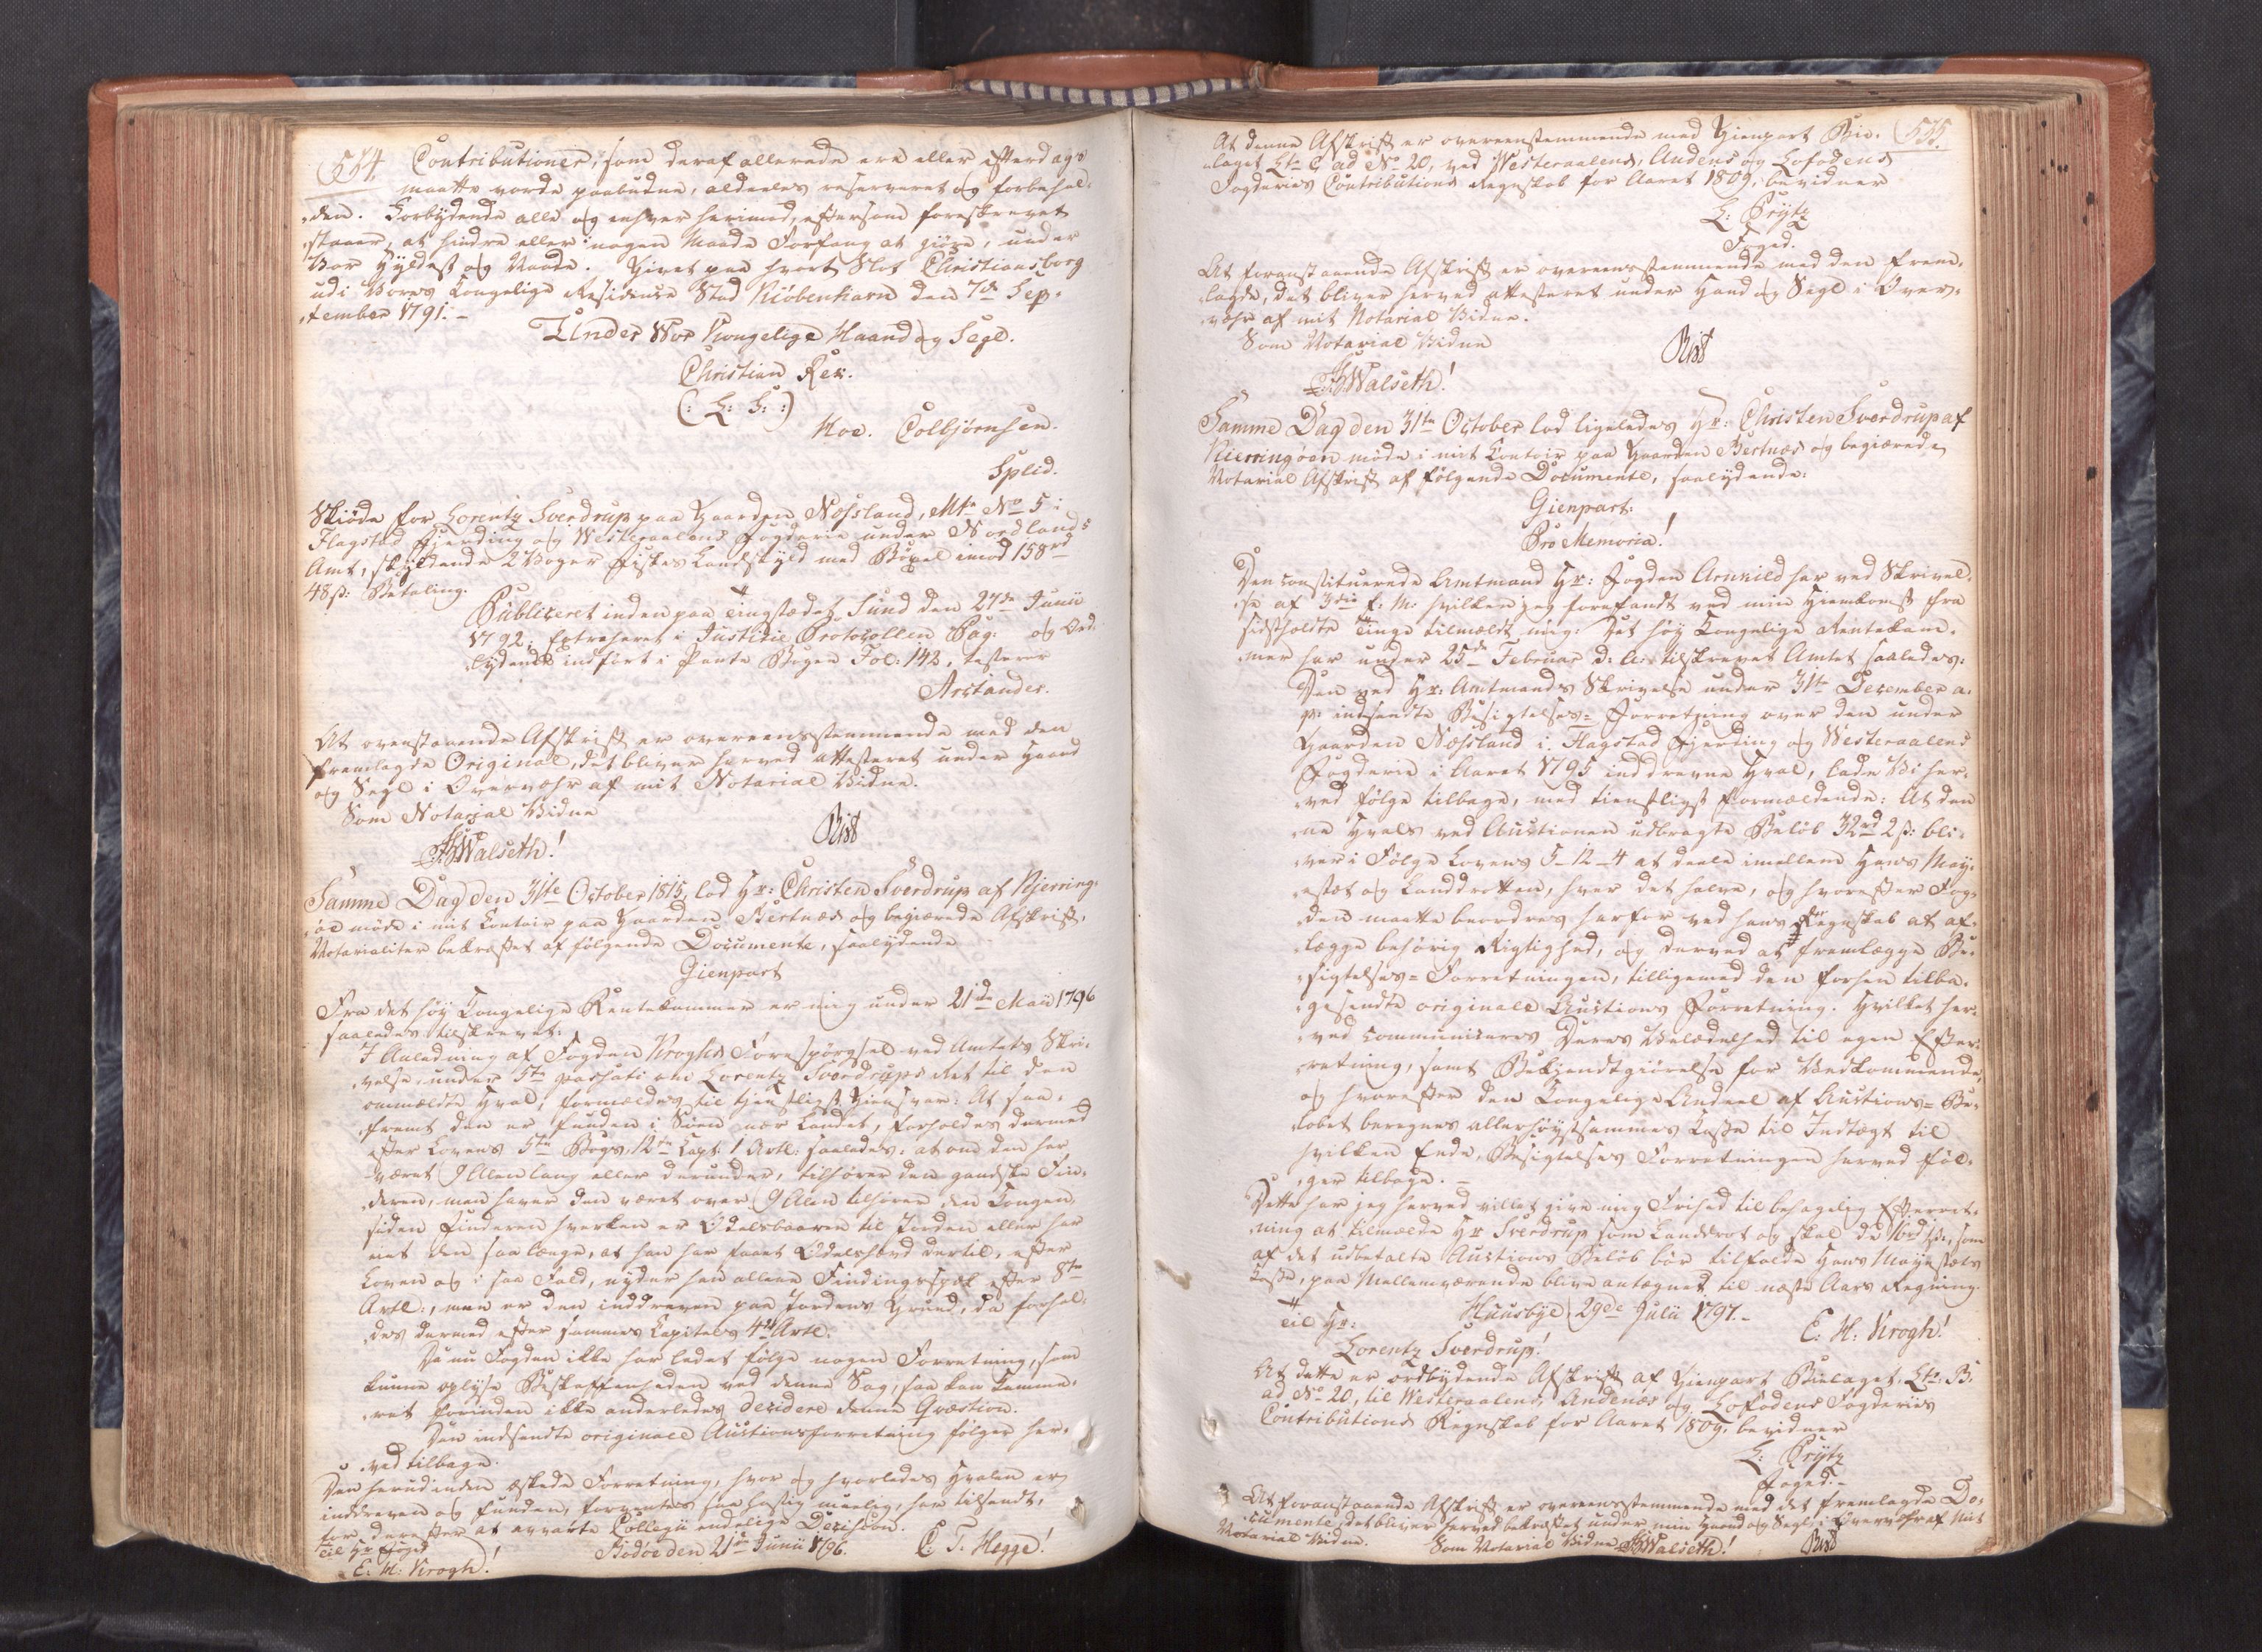 534 Contributioner, som deraf allerede ere eller efterdags
maatte vorde paabudne, aldeeles reserveret og forbehol-
den. Forbydende alle og enhver herimod, eftersom foreskrevet
staaer, at hindre eller i nogen Maade Forfang at giøre, under
Vor Hyldest og Naade. Givet paa Slot Christiansborg
udi Vores Kongelige Residence Stad Kiøbenhavn den 7de Sep-
tember 1791.-
Under Vor Kongelige Haand og Segl.
Christian Rex.
(: L: S: :)
Moe. Colbjørnsen.
Splid.
Skiøde for Lorentz Sverdrup paa Gaarden Næsland, Mtr No 5 i
Flagstad Fierding og Westeraalens Fogderie under Nordlands
Amt, skyldende 2 Voger Fiskes Landskyld med Bøxel imod 158 rd
48 s: Betaling.
Publiceret inden paa Tingstædet Sund den 27de Junii
1792; Extraheret i Justitie Protocollen Pag: og Ord-
lydende indført i Pante Bogen Fol: 142, testerer
Arctander.
At ovenstaaende Afskrift er overeensstemmende med den
fremlagde Original, det bliver herved attesteret under Haand
og Segl i Overvær af mit Notarial Vidne.
Som Notarial Vidne
Walseth! Rist
Samme Dag den 31te October 1815, lod Hr: Christen Sverdrup af Kjerring-
øe møde i mit Contoir paa Gaarden Bertnæs og begiærede Afskrift,
Notarialiter bekræftet af følgende Documente, saalydende
Gienpart
Fra det høy Kongelige Rentekammer er mig under 21de Maii 1796
saaledes tilskrevet:
I Anledning af Fogden Kroghs Forespørgsel ved Amtets Skri-
velse under 5te passati om Lorentz Sverdrups Ret til den
ommældte Hval, formældes til tienstligst Giensvar: At saa-
fremt den er funden i Søen nær Landet, forholdes dermed
efter Lovens 5te Bogs, 12te Capt: 1 Artl: saaledes: at om den har
været 9 Alen lang eller derunder, tilhører den gandske Fin-
deren, men haver den været over 9 Alen tilhører den Kongen
siden Finderen hverken er Odelsbaaren til Jorden eller har
eiet den saa længe, at han har faaet Odelshævd dertil, efter
Loven og i saa Fald, nyder han allene Findingsspæk efter 8te
Artl:, men er den inddreven paa Jordens Grund, da forhol-
des dermed efter sammes Capitels 4de Artl.
Da nu Fogden ikke har ladet følge nogen Forretning, som
kunne oplyse Beskaffenheden ved denne Sag, saa kan Kamme-
ret forinden ikke anderledes decidere denne Qvæstion.
Den indsendte originale Auctionsforretning følger her-
ved tilbage.
Den herudinden æskede Forretning, hvor og hvorledes Hvalen er
inddreven og funden, forventes saa hastig muelig, har tilsendt,
for derefter at avvarte Collegii endelige Decision.
Til Hr Foged Bodøe den 21de Junii 1796. C: T: Hegge!
E: H: Krogh!
At denne Afskrift er overeensstemmende med Gienpart Bie- 535.
laget Ltr: C ad No 20, ved Westeraalens, Andenæs og Lofodens
Fogderies Contributions Regnskab for Aaret 1809, bevidner
L: Prytz
Foged.
At foranstaaende Afskrift er overeensstemmende med den frem-
lagde, det bliver herved attesteret under Haand og Segl i Over-
vær af mit Notarial Vidne.
Som Notarial Vidne Rist
Walseth!
Samme Dag den 31te October lod ligeledes Hr: Christen Sverdrup af
Kierringøen møde i mit Contoir paa Gaarden Bertnæs og begiærede
Notarial Afskrift af følgende Documente, saalydende:
Gienpart.
Pro Memoria!
Den constituerede Amtmand Hr: Fogden Arnkild har ved Skrivel-
se af 3die f: M: hvilken jeg forefandt ved min Hiemkomst fra
sidstholdte Tinge tilmældt mig: Det høy Kongelige Rentekam-
mer har under 25de Februar d: A: tilskrevet Amtet saaledes:
Den ved Hr: Amtmands Skrivelse under 31te December a.
p: indsendte Besigtelses= Forretning over den under
Gaarden Næsland i Flagstad Fjerding og Westeraalens
Fogderie i Aaret 1795 inddrevne Hval, lade Vi her-
ved følge tilbage, med tienstligst formældende: At den-
ne Hvals ved Auctionen udbragte Beløb 32 rd 2 s: bli-
ver i Følge Lovens 5-12-4 at deele imellem Hans May-
estæt og Landdrotten, hver det halve, og hvorefter Fog-
den maatte beordres herfor ved hans Regnskab at af-
lægge behørig Rigtighed, og derved at fremlægge Be-
sigtelses= Forretningen, tilligemed den forhen tilba-
gesendte originale Auctions Forretning. Hvilket her-
ved communiceres Deres Velædelhed til egen Efter-
retning, samt Bekiendtgiørelse for Vedkommende,
og hvorefter den Kongelige Andeel af Auctions= Be-
løbet beregnes allerhøystsammes Casse til Indtægt til
hvilken Ende, Besigtelses Forretningen herved føl-
ger tilbage. -
Dette har jeg herved villet give mig Frihed til behagelig Efterret-
ning at tilmælde Hr Sverdrup som Landdrot og skal de 16 rd 1 s:, som
af det udbetalte Auctions Beløb bør tilfalde Hans Mayestæts
Casse, paa Mellemværende blive antegnet til næste Aars Regning.
Huusbye 29de Julii 1797.-
Til Hr: E: H: Krogh!
Lorentz Sverdrup!
At dette er ordlydende Afskrift af Gienpart Bielaget, Ltr: B.
ad No 20, til Westeraalens, Andenæs og Lofodens Fogderies
Contributions Regnskab for Aaret 1809, bevidner
L: Prytz
Foged.-
At foranstaaende Afskrift er overeensstemmende med det fremlagde Do-
cumente, det bliver herved bekræftet under min Haand og Segl i Overvær af mit
Notarial Vidne. Som Notarial Vidne Walseth! Rist